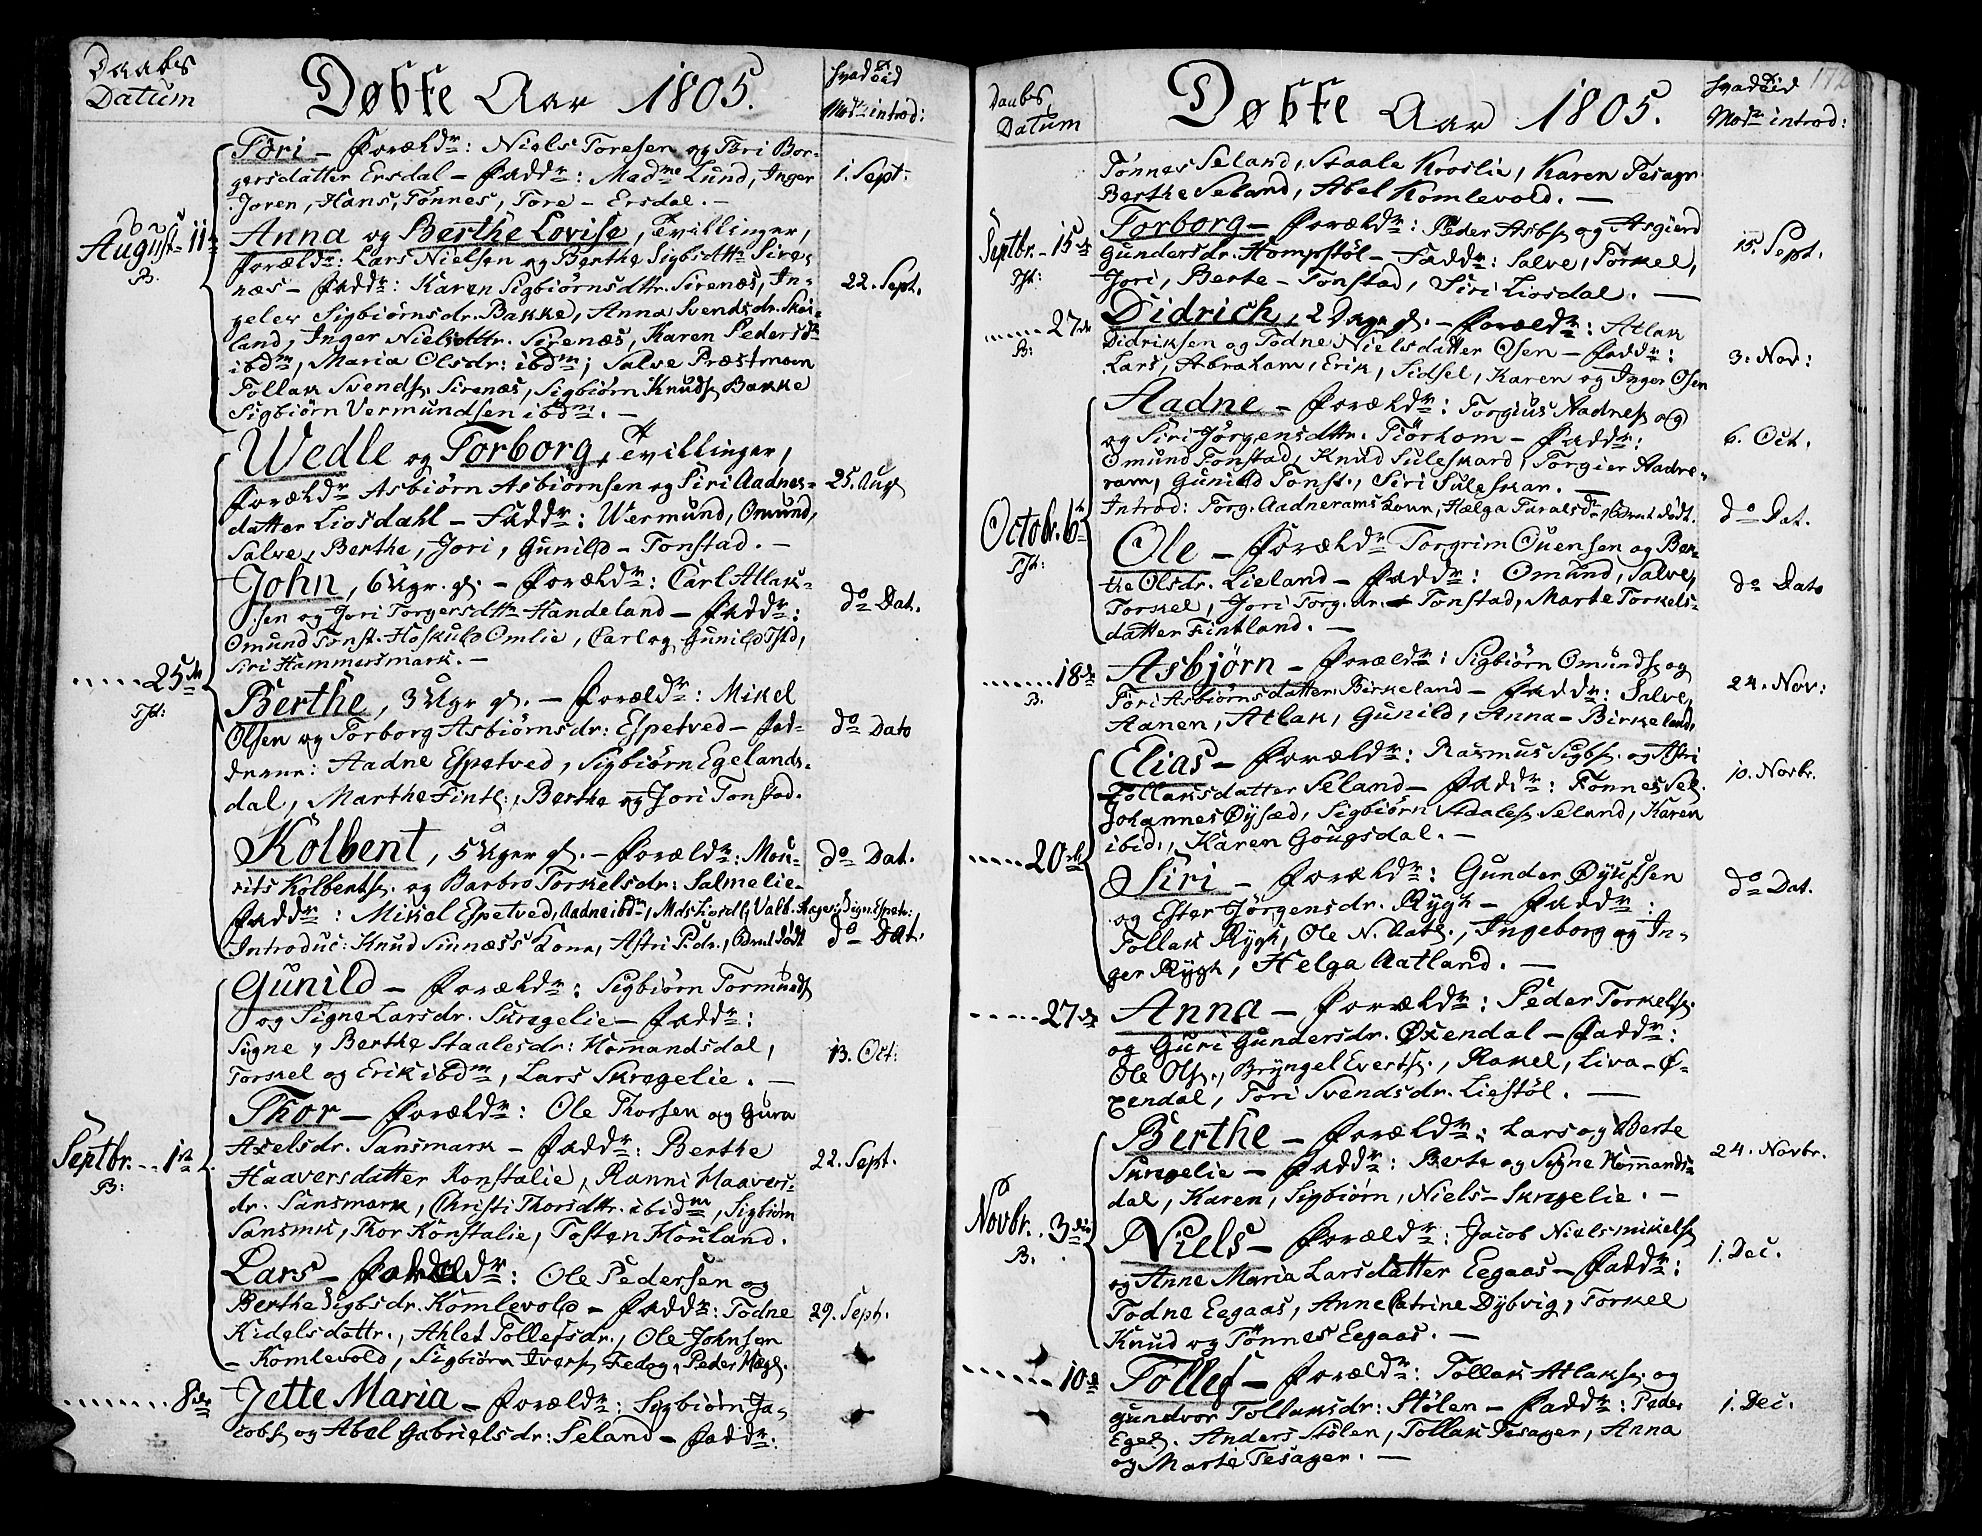 Daabs
Datum
Døbte Aar 1805.
hvad Tid
Modr introd:
Töri – Forældr: Niels Toresen og Töri Bor-
gersdatter Ersdal – Faddr: Madme Lund, Inger
Joren, Hans, Tönnes, Tore – Ersdal. –
1. Sept:
August 11te
B.
Anna og Berthe Lovise, Tvillinger,
Forældr: Lars Nielsen og Berthe Sigbsdttr Sire-
næs – Faddr: Karen Sigbiörnsdttr. Sirenæs, In-
geler Sigbiörnsdr. Bakke, Anna Svendsdr. Skei-
land, Inger Nielsdttr. Sirenæs, Karen Pedersdr
ibdm, Maria Olsdr: ibdm; Salve Præstmoen
Tollak Svends. Sirenæs, Sigbiörn Knuds. Bakke
Sigbiörn Vermundsen ibdm. –
22. Sept.
Wedle og Torborg, Tvillinger,
Forældr Asbiörn Asbiörnsen og Siri Aadnes-
datter Liosdahl – Faddr: Wermund, Omund,
Salve, Berthe, Jori, Gunild – Tonstad. –
25. Aug
John, 6 Ugr. g. – Forældr: Carl Atlak-
sen og Jori Torgersdttr Handeland – Faddr:
Omund Tonst. Hoskuld Omlie, Carl og Gunild Tstd,
Siri Hammersmark. –
do Dat.
25de
Tst:
Berthe, 3 Ugr g. – Forældr: Mikel
Olsen og Torborg Asbiörnsdr: Espetved – Fad-
derne: Aadne Espetved, Sigbiörn Egelands-
dal, Marthe Fintl:, Berthe og Jori Tonstad.
do Dato
Kolbent, 5 Uger g. – Forældr: Mou-
rits Kolbents. og Barbro Torkelsdr: Salmelie –
Faddr: Mikal Espetved, Aadne ibdm, Valb. Hager, Sign. Espetv:
Introduc: Knud Sinnæss Kone, Astri Pdr., Barnet dødt
do Dat.
do Dat.
Gunild – Forældr: Sigbiörn Tormunds
og Signe Larsdr. Skregelie – Faddr:
Sygne, Berthe Staalesdr: Homandsdal,
Torkel og Erik ibdm, Lars Skregelie. –
13. Oct:
Septbr. 1te
B:
Thor – Forældr: Ole Thorsen og Guro
Axelsdr. Sansmark – Faddr: Berthe
Haaversdatter Konstalie, Ranni Haavers-
dr. Sansmark, Christi Thorsdttr. ibidm, Sigbiörn
Sansmk, Thor Konstalie, Tosten Houland.
22. Sept.
Lars – Forældr: Ole Pedersen og
Berthe Sigbsdr. Komlevold – Faddr: Todne
Kidelsdattr., Ahlet Tollefsdr., Ole Johnsen
– Komlevold, Sigbiörn Ivers. Fedog, Peder Hægl.
29. Sept.
8de
Jette Maria – Forældr: Sigbiörn Ja-
cobs. og Abel Gabrielsdr: Seland – Faddr:
Daabs
Datum
Døbte Aar 1805.
hvad Tid
Modr introd:
172
Tönnes Seland, Staale Kroslie, Karen Tesagr
Berthe Seland, Abel Komlevold. –
Septbr. 15de
Tst:
Torborg – Forældr: Peder Asbs. og Asgierd
Gundersdr. Hompstöl – Faddr: Salve, Torkel,
Jori, Berte – Tonstad, Siri Liosdal. –
15. Sept.
27de
B:
Didrich, 2 Dage g. – Forældr: Atlak
Didriksen og Todne Nielsdatter Osen – Faddr:
Lars, Abraham, Erik, Sidsel, Karen og Inger Osen
3. Nov:
Octobr. 6te
Tst:
Aadne – Forældr: Torgius Aadnes. og
og Siri Jörgensdttr. Tiörhom – Faddr:
Omund Tonstad, Knud Suleskard, Torgier Aadne-
ram, Gunild Tonst., Siri Suleskar. –
Introd: Torg. Aadnerams Kone, Helga Taraldsdr, Barnet dødt.
6. Oct.
do Dat.
Ole – Forældr Torgrim Ouensen og Ber-
the Olsdr. Lieland – Faddr: Omund, Salve,
Torkel, Jori Torg. dr. – Tonstad, Marte Torkels-
datter Fintland. –
do Dato
18de
B.
Asbjørn – Forældr: Sigbiörn Omunds. og
Töri Asbiörnsdatter Birkeland – Faddr: Salve,
Aanen, Atlak, Gunild, Anna – Birkeland.
24. Nov:
Elias – Forældr: Rasmus Sigbs. og Astri
Tollaksdatter Seland – Faddr: Tönnes Sel.
Johannes Øysæd, Sigbiörn Staales. Seland, Karen
ibid., Karen Gougsdal. –
10. Novbr.
20de
Siri – Forældr: Gunder Øyufsen
og Ester Jörgensdr. Rygh – Faddr:
Tollak Rygh, Ole N. Aatl., Ingeborg og In-
ger Rygh, Helga Aatland. –
do Dat.
27de
Anna – Forældr: Peder Torkels.
og Guri Gundersdr. Øxendal – Faddr:
Ole Ols., Bryngel Everts., Rakel, Liva – Ø-
xendal, Töri Svendsdr. Liestöl. –
Novbr. 3die
B.
Berthe – Forældr: Lars og Berte
Skregelie – Faddr: Berte og Signe Hommands-
dal, Karen, Sigbiörn, Niels – Skregelie. –
24. Novbr.
Niels – Forældr: Jacob Nielsmikels.
og Anne Maria Larsdatter Eegaas – Faddr:
Todne Eegaas, Anne Catrine Dybvig, Torkel
Knud og Tönnes Eegaas. –
1. Dec.
10de
Tollef – Forældr: Tollak Atlaks. og
Gundvor Tollaksdr: Stölen – Faddr: Peder
Egel. Anders Stölen, Tollak Tesager, Anna
og Marte Tesager. –
1. Dec.